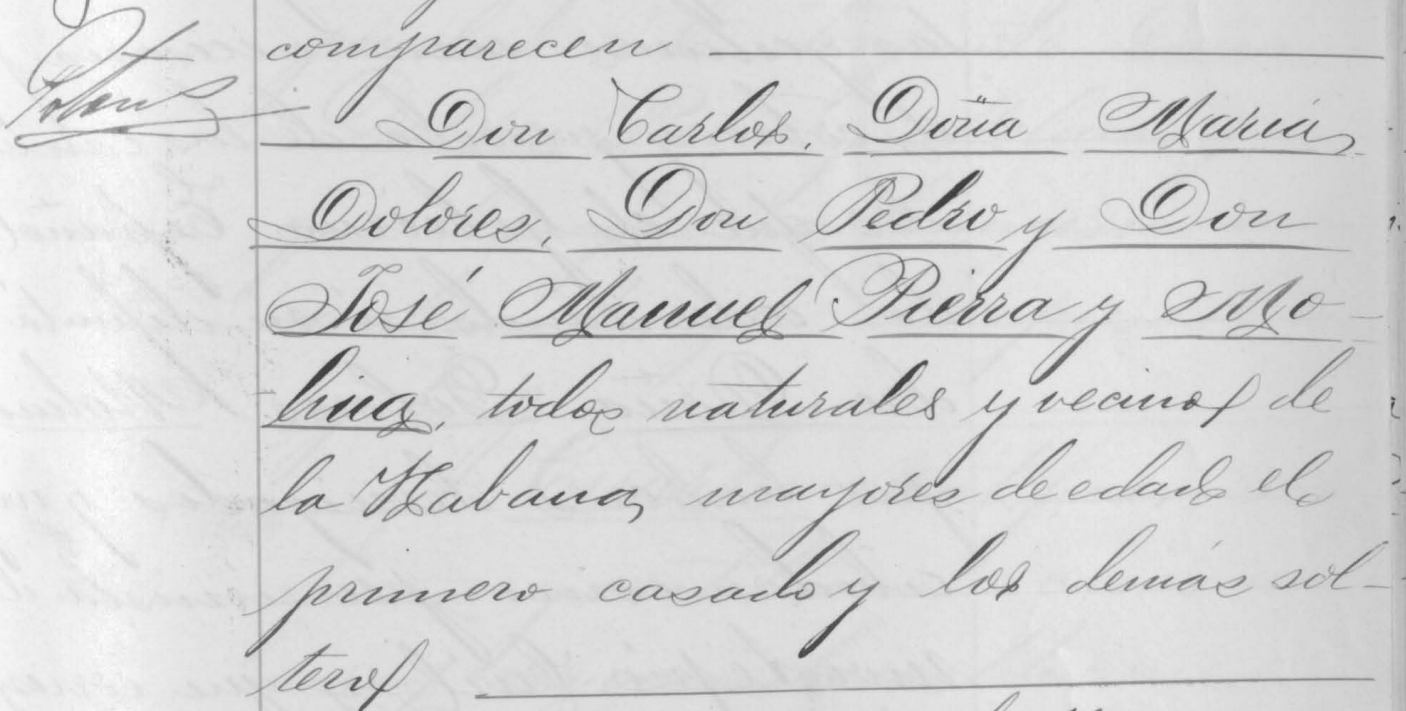 comparecen
Don Carlos, Doña María
Dolores, Don Pedro y Don
José Manuel Pierra y Mo-
lina, todos naturales y vecinos de
la Habana, mayores de edad el
primero casado y los demás sol-
teros